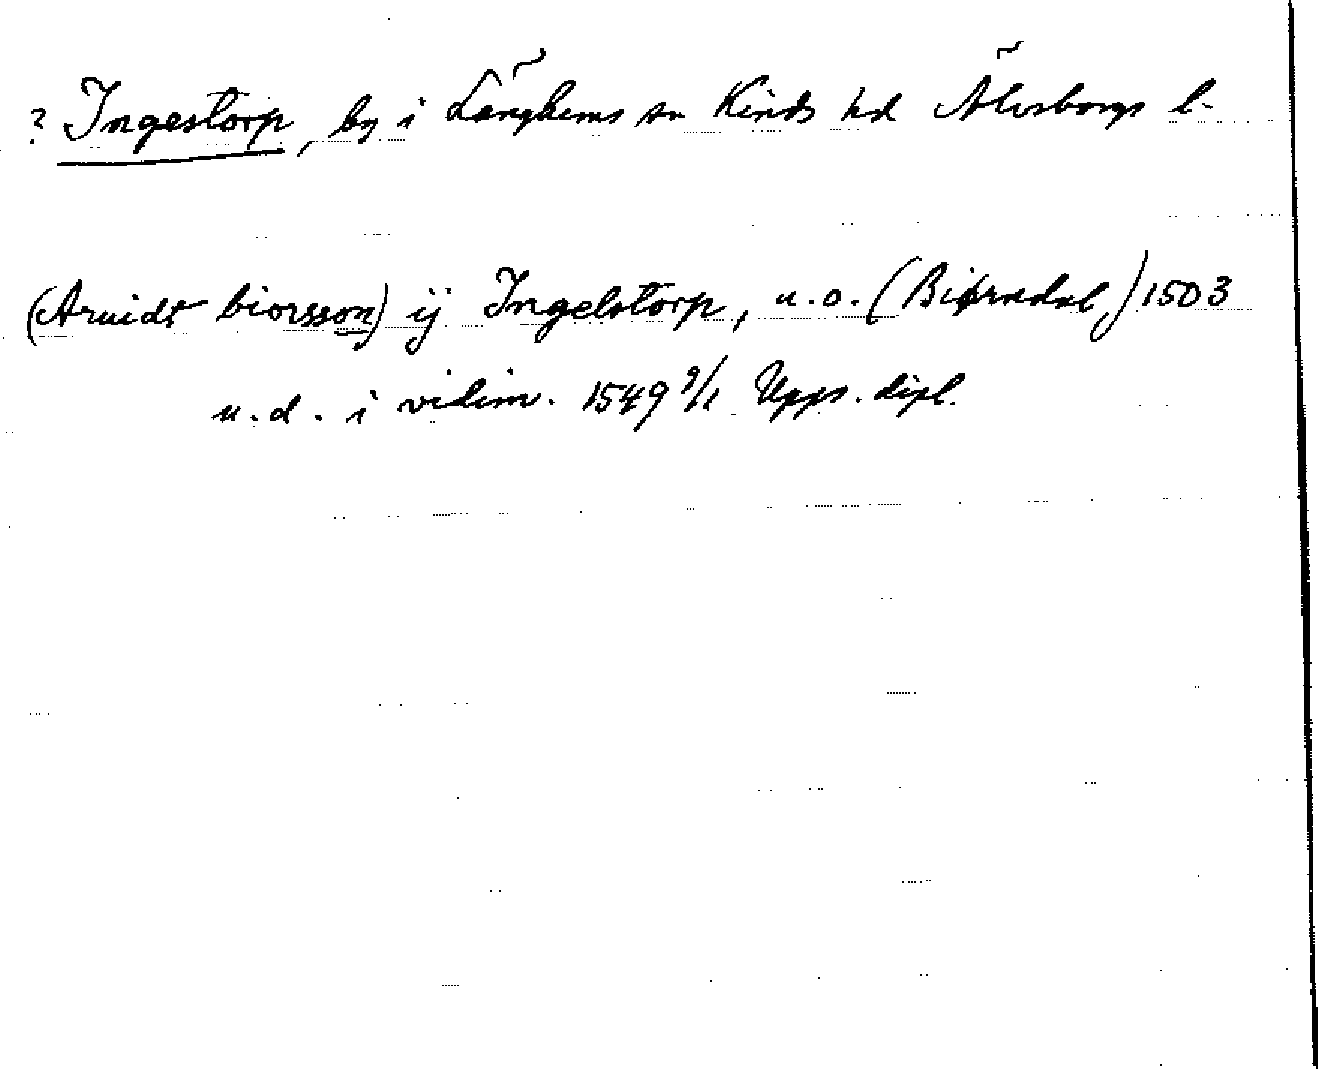 ? Ingestorp, by i Länghems sn Kinds hd Älvsborgs l.
(Aruidt biorsson) ij Ingelstorp, u.o. (Biørndal) 1503
u.d. i vidim. 1549 9/1 Upps. dipl.